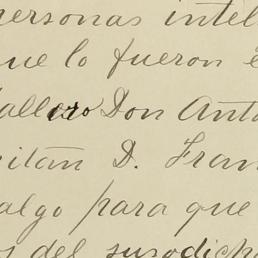 personas intel
ue lo fueron e
allero Don Anto
itan D. Fran
algo para que
s del susodicho